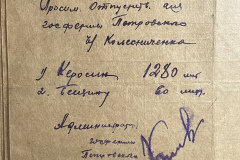 Просим Отпустить для
госфермы Петровского
Ч/ Колесниченка
1) Керосин 1280 лит
2. Бензину 60 литр.
Администрат.
госфермы
Петровского